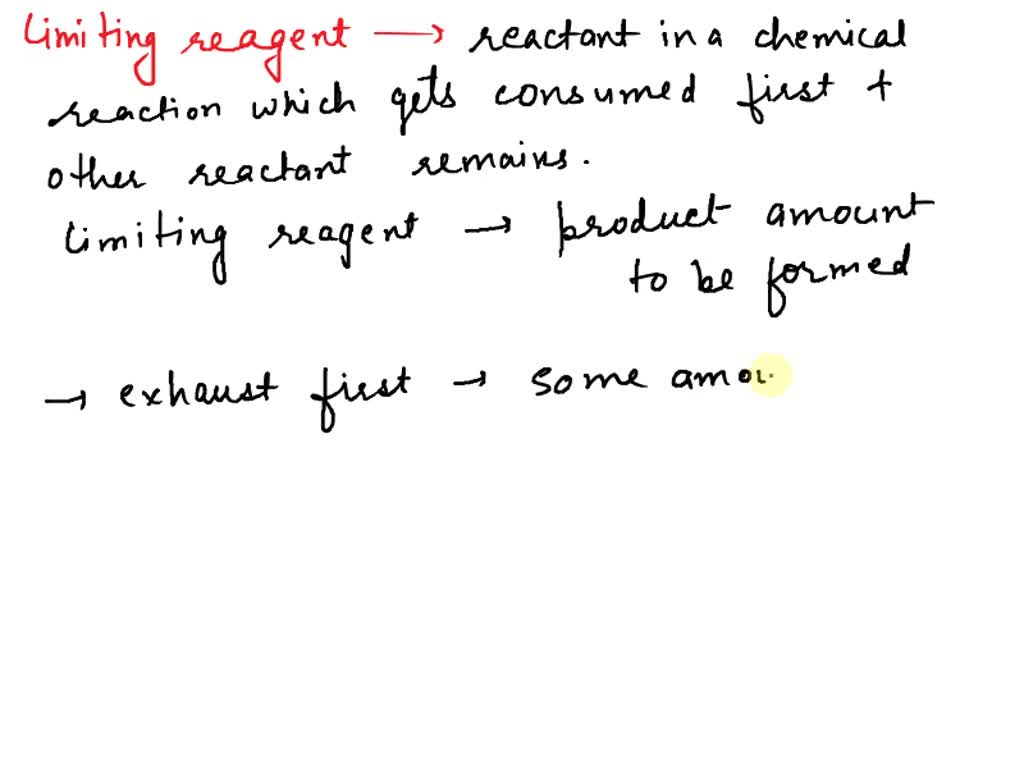 Limiting reagent → reactant in a chemical
reaction which gets consumed first +
other reactant remains.
limiting reagent → product amount
to be formed
→ exhaust first → some amou